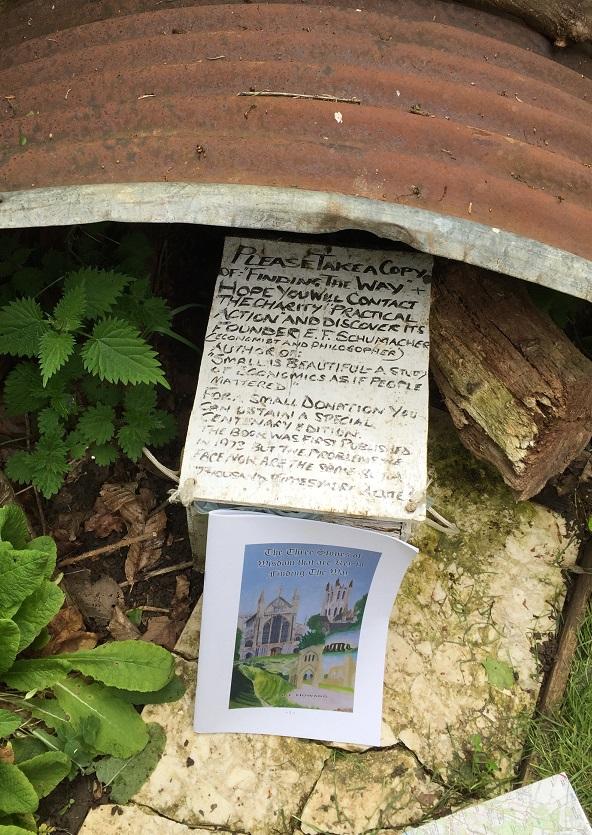 PLEASE TAKE A COPY
OF "FINDING THE WAY" +
HOPE YOU WILL CONTACT
THE CHARITY "PRACTICAL
ACTION AND DISCOVER ITS
FOUNDER E.F. SCHUMACHER
(ECONOMIST AND PHILOSOPHER)
AUTHOR OF:
"SMALL IS BEAUTIFUL - A STUDY
OF ECONOMICS AS IF PEOPLE
MATTERED"
FOR A SMALL DONATION YOU
CAN OBTAIN A SPECIAL
CENTENARY EDITION.
THE BOOK WAS FIRST PUBLISHED
IN 1973 BUT THE PROBLEMS WE
FACE NOW ARE THE SAME &
THOUSAND TIMES MORE ACUTE!
The Three Stones of
Wisdom that are Key to
Finding The Way
HOWARD